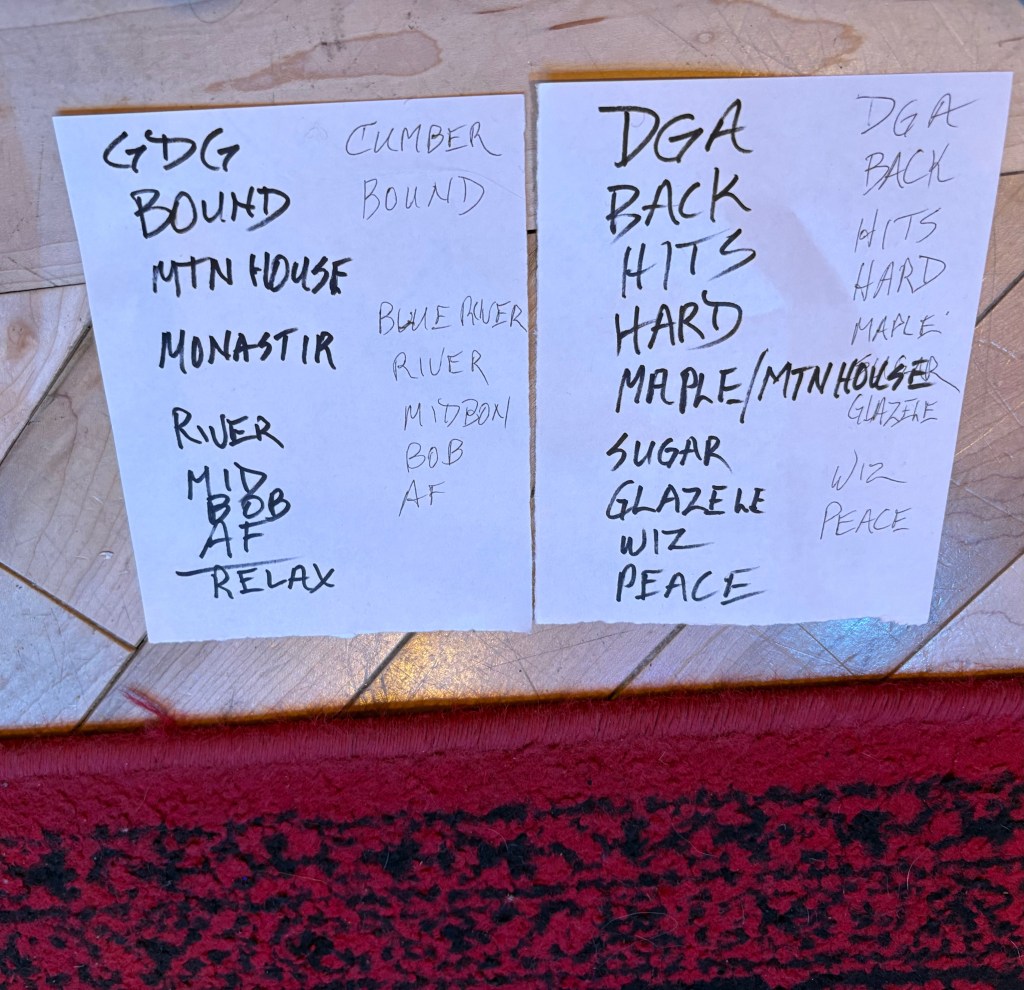 GDG
BOUND
MTN HOUSE
MONASTIR
RIVER
MID
BOB
AF
RELAX
CUMBER
BOUND
BLUE RIVER
RIVER
MIDBON
BOB
AF
DGA
BACK
HITS
HARD
MAPLE/MTN HOUSE
SUGAR
GLAZELE
WIZ
PEACE
DGA
BACK
HITS
HARD
MAPLE
GLAZELE
WIZ
PEACE